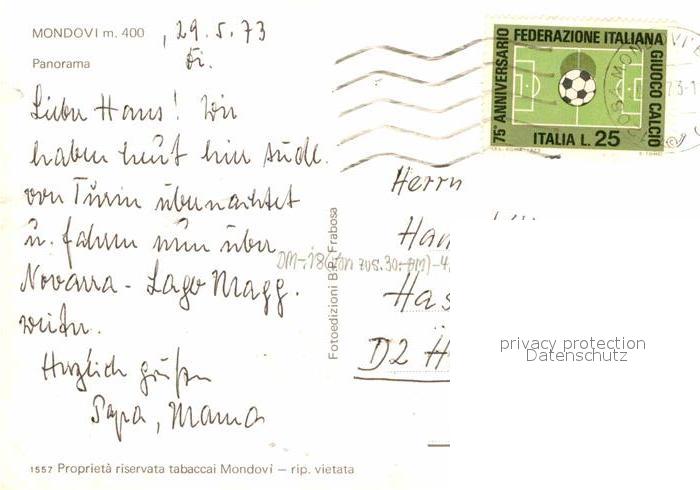 MONDOVI m. 400
, 29.5.73
Panorama
Di.
Lieber Hans! Wir
haben heut hier südl.
von Turin übernachtet
u. fahren nun über
Novarra - Lago Magg.
weiter.
Herzlich grüßen
Papa, Mama
1557 Proprietà riservata tabaccai Mondovì — rip. vietata
Fotoedizioni B.P. Frabosa
75° ANNIVERSARIO
FEDERAZIONE ITALIANA
GIUOCO CALCIO
ITALIA L. 25
Herrn
Han
Has
D2 H
privacy protection
Datenschutz